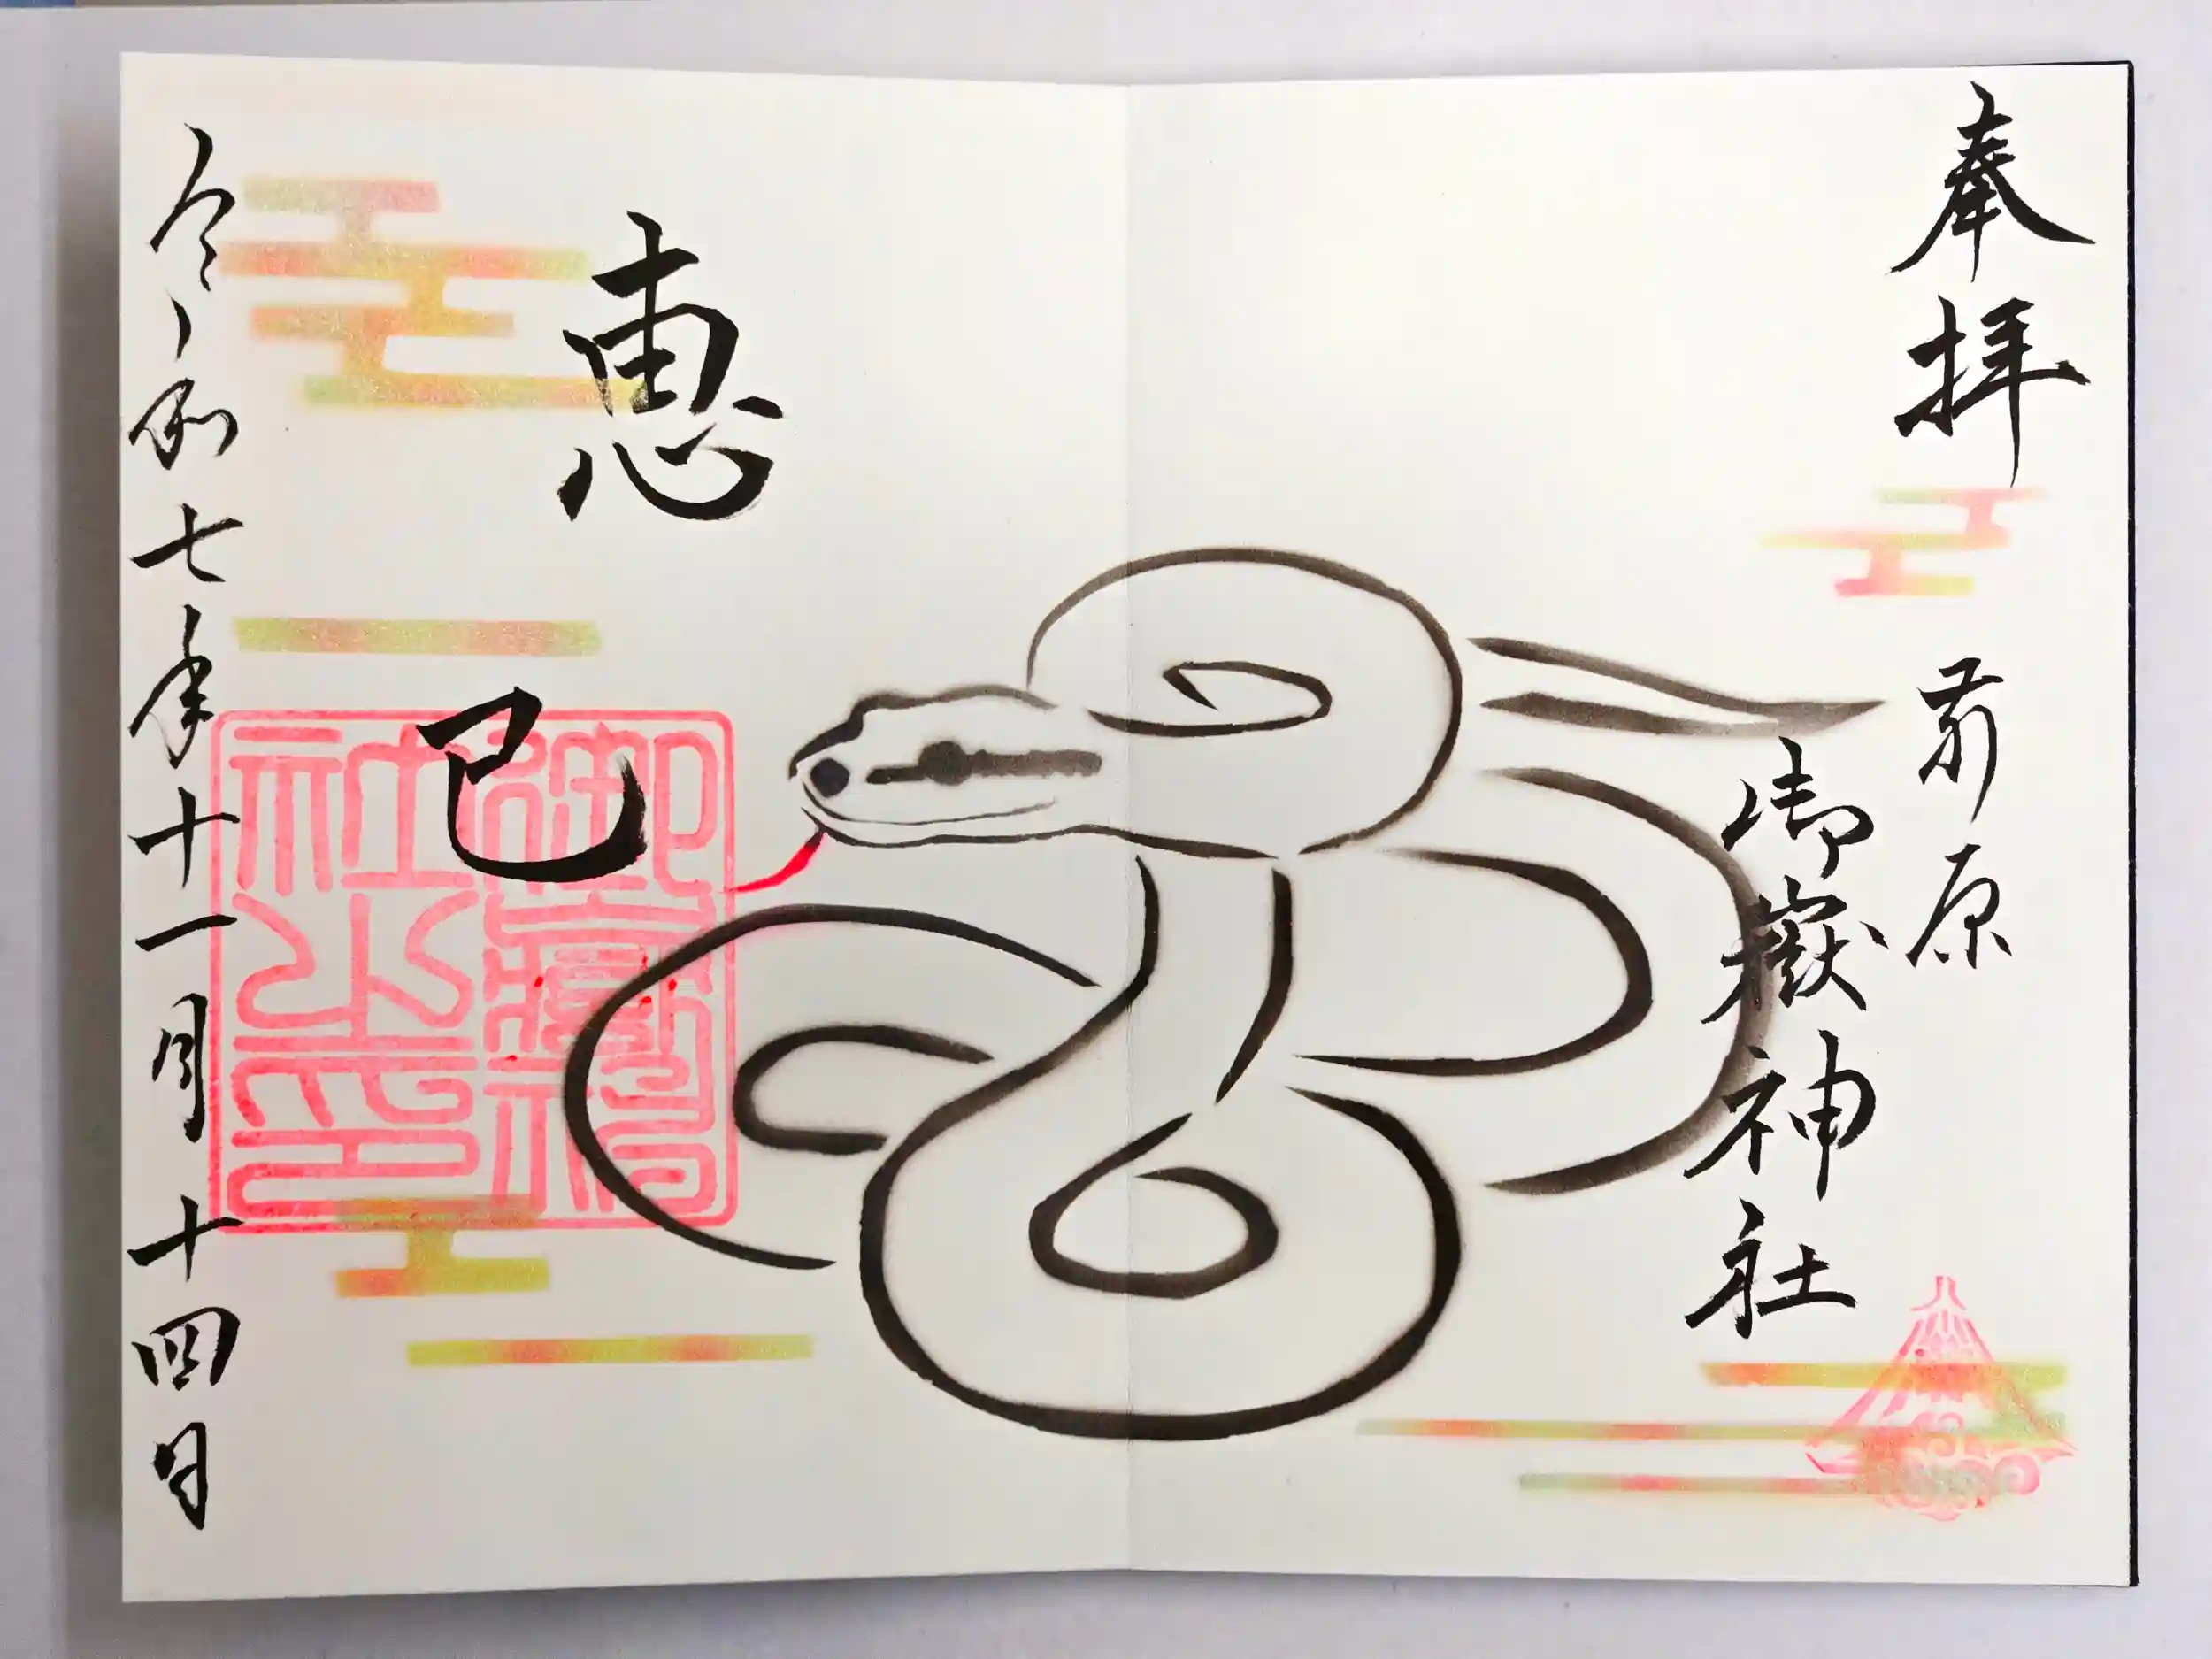 奉拝
前原
御嶽神社
恵
巳
令和七年十一月十四日
御嶽神社之印